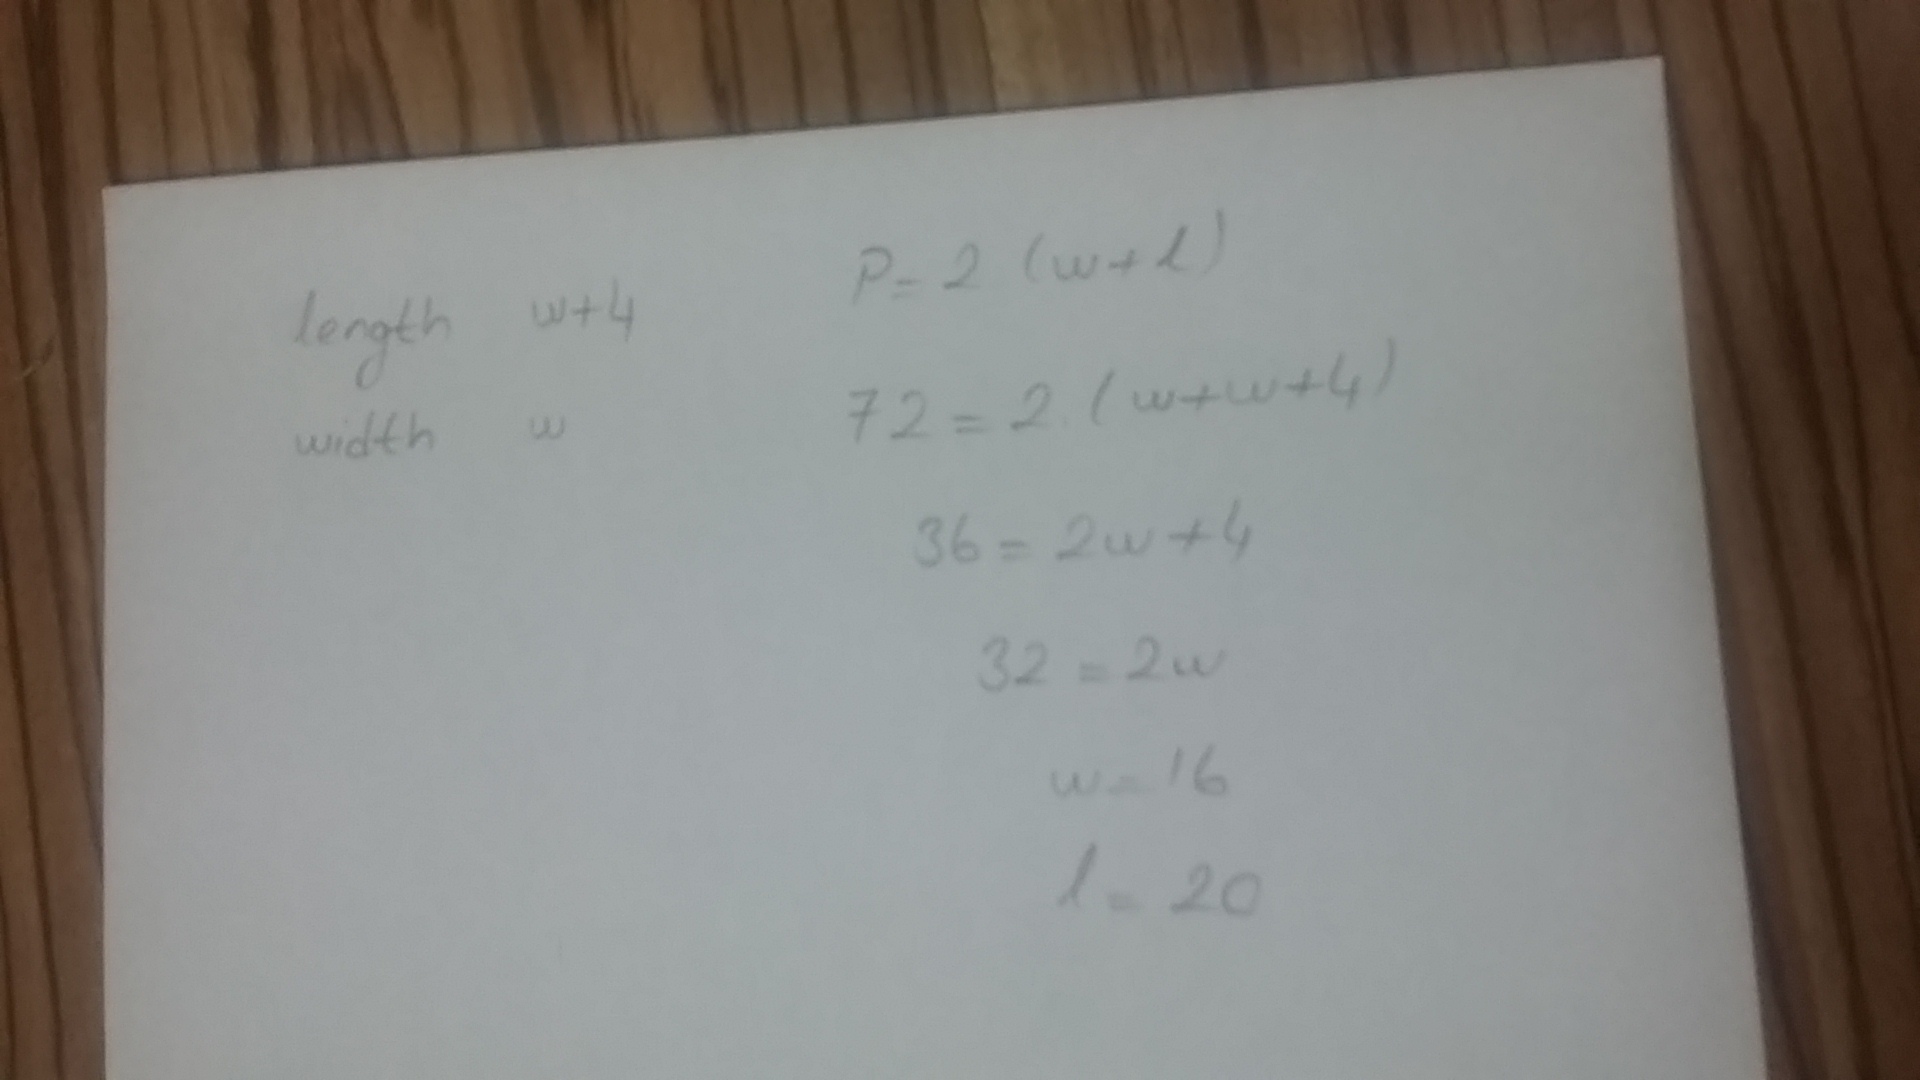 length w+4
width w
P=2 (w+l)
72=2.(w+w+4)
36=2w+4
32=2w
w=16
l=20